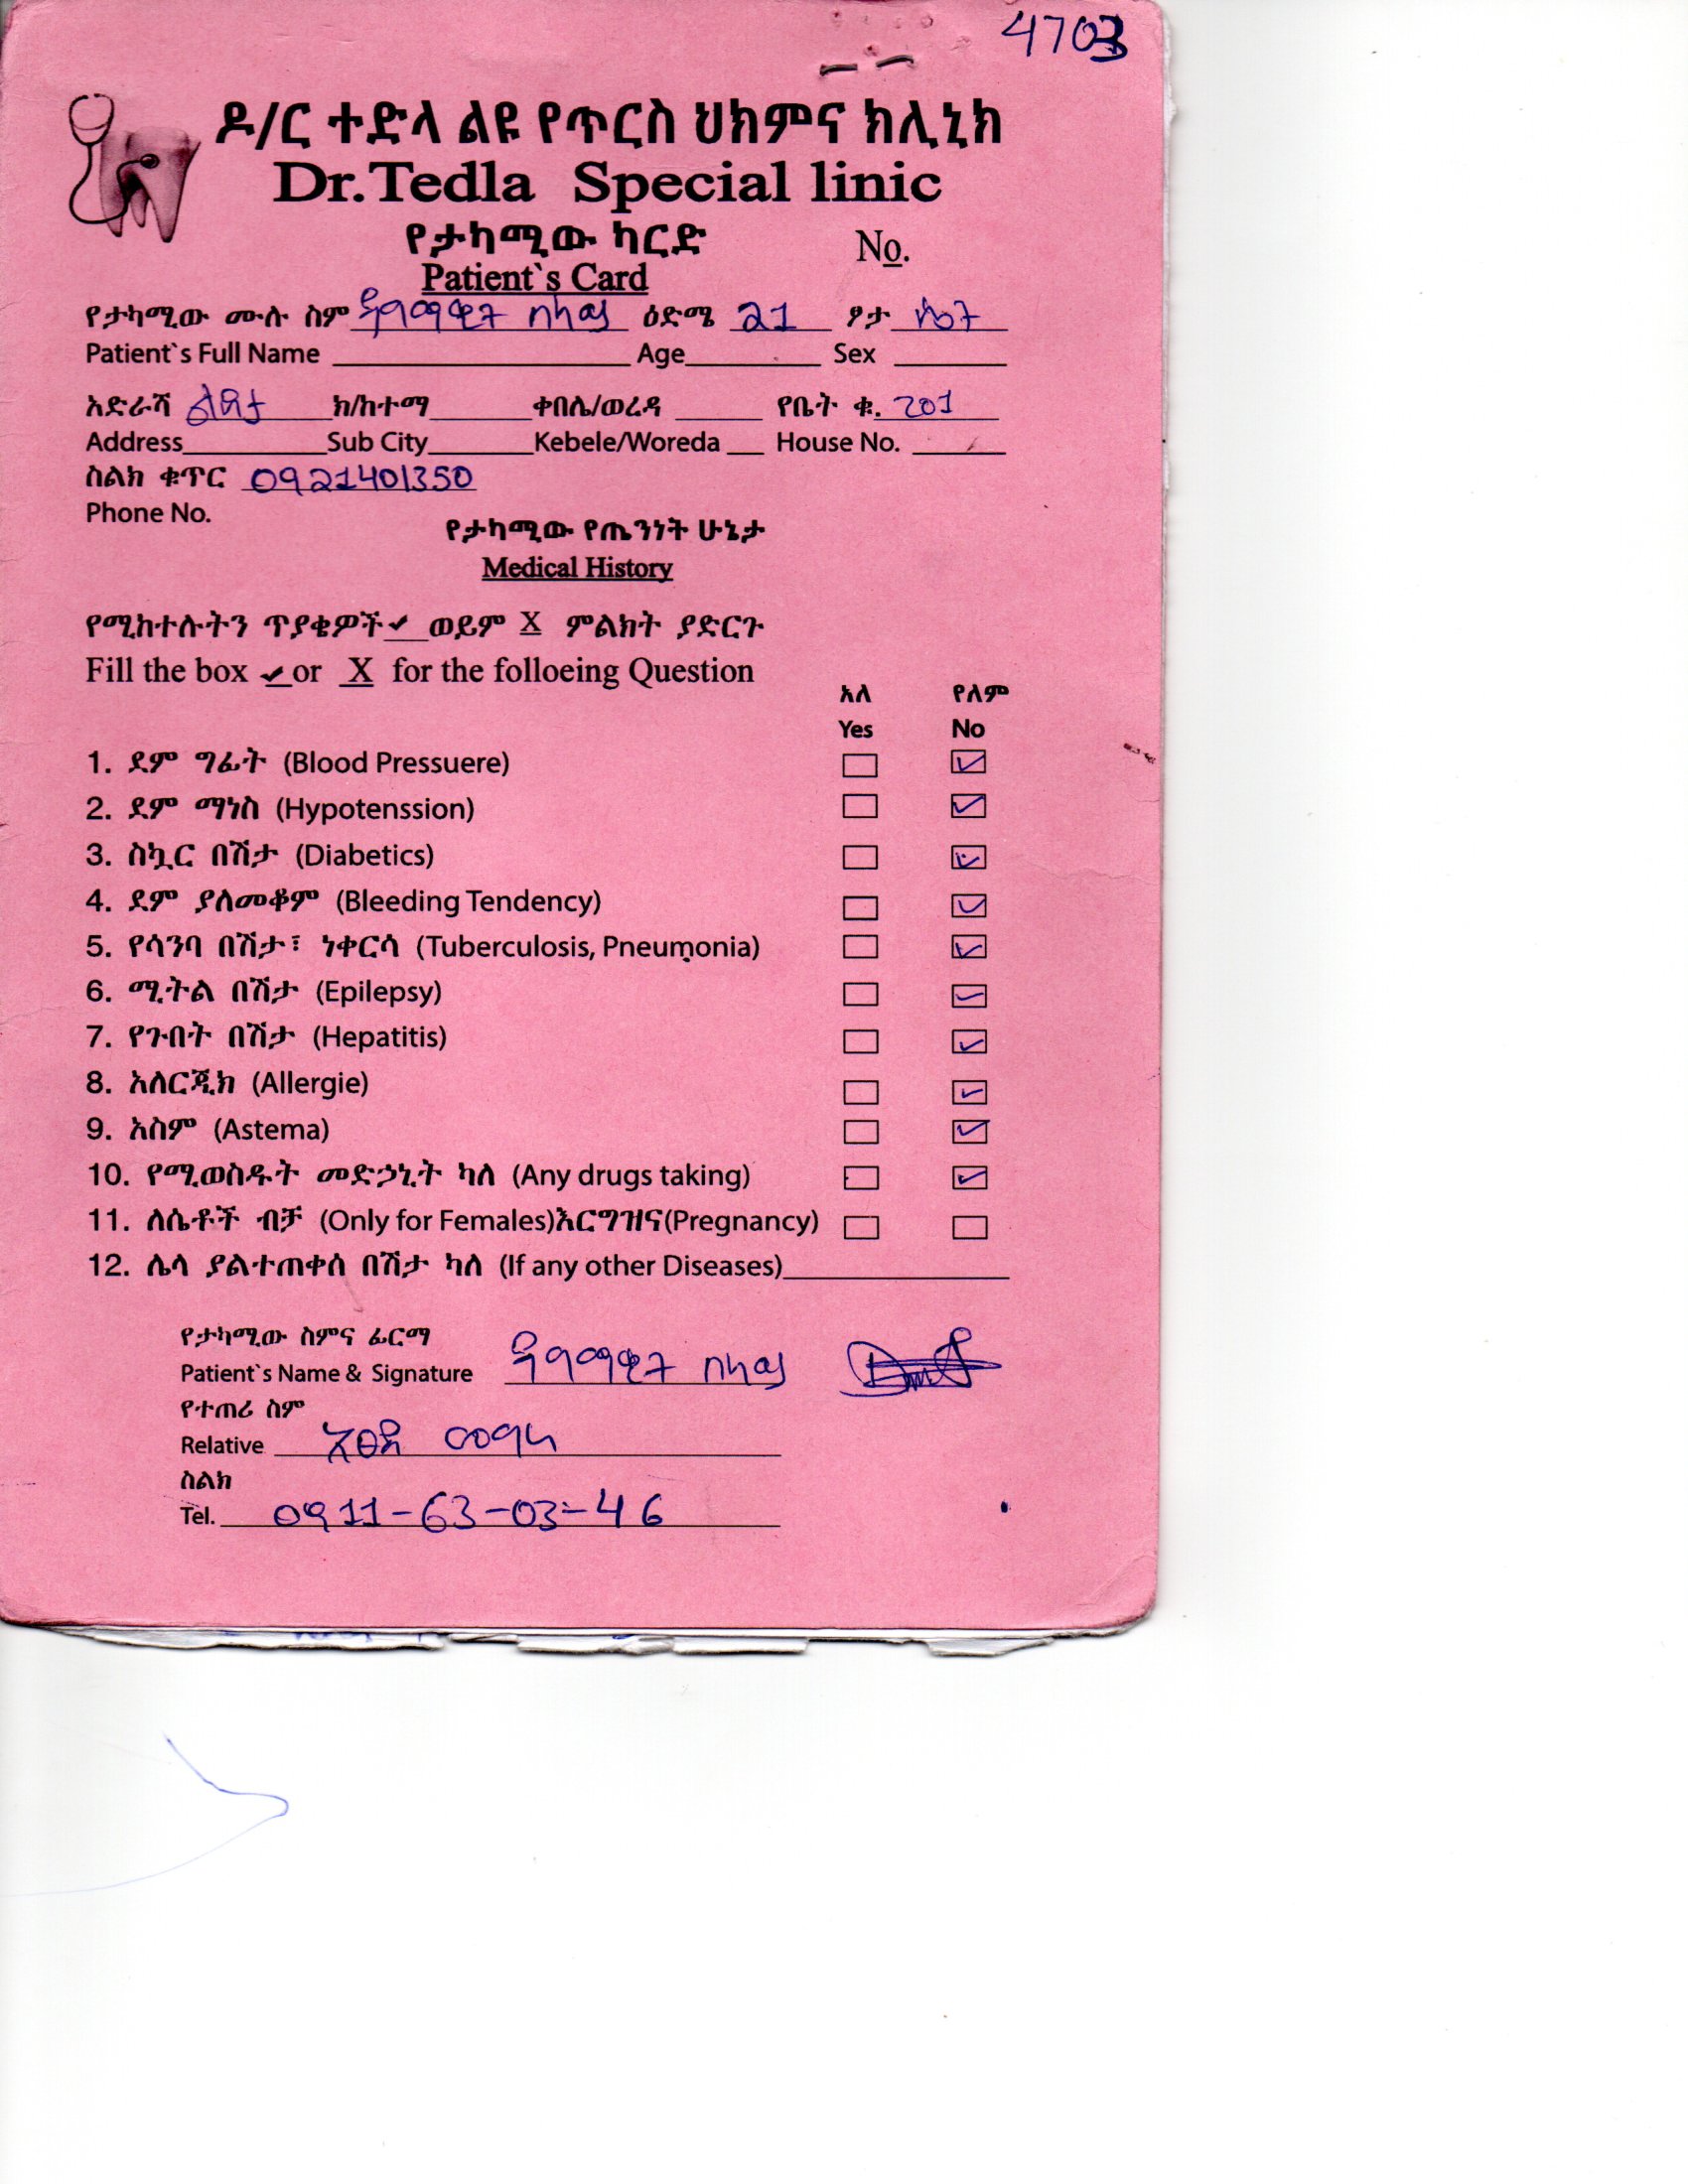 4703
ዶ/ር ተድላ ልዩ የጥርስ ህክምና ክሊኒክ
Dr.Tedla Special linic
የታካሚው ካርድ No.
Patient`s Card
የታካሚው ሙሉ ስም ዳግማዊት በላይ ዕድሜ 21 ፆታ ሴት
Patient`s Full Name Age Sex
አድራሻ ልደታ ክ/ከተማ ቀበሌ/ወረዳ የቤት ቁ. 201
Address Sub City Kebele/Woreda House No.
ስልክ ቁጥር 0921401350
Phone No.
የታካሚው የጤንነት ሁኔታ
Medical History
የሚከተሉትን ጥያቄዎች ✔ ወይም X ምልክት ያድርጉ
Fill the box ✔ or X for the folloeing Question
አለ የለም
Yes No
1. ደም ግፊት (Blood Pressuere) ✓
2. ደም ማነስ (Hypotenssion) ✓
3. ስኳር በሽታ (Diabetics) ✓
4. ደም ያለመቆም (Bleeding Tendency) ✓
5. የሳንባ በሽታ፣ ነቀርሳ (Tuberculosis, Pneumonia) ✓
6. ሚትል በሽታ (Epilepsy) ✓
7. የጉበት በሽታ (Hepatitis) ✓
8. አለርጂክ (Allergie) ✓
9. አስም (Astema) ✓
10. የሚወስዱት መድኃኒት ካለ (Any drugs taking) ✓
11. ለሴቶች ብቻ (Only for Females)እርግዝና(Pregnancy)
12. ሌላ ያልተጠቀሰ በሽታ ካለ (If any other Diseases)
የታካሚው ስምና ፊርማ
Patient`s Name & Signature ዳግማዊት በላይ
የተጠሪ ስም
Relative
ስልክ
Tel. 0911-63-03-46